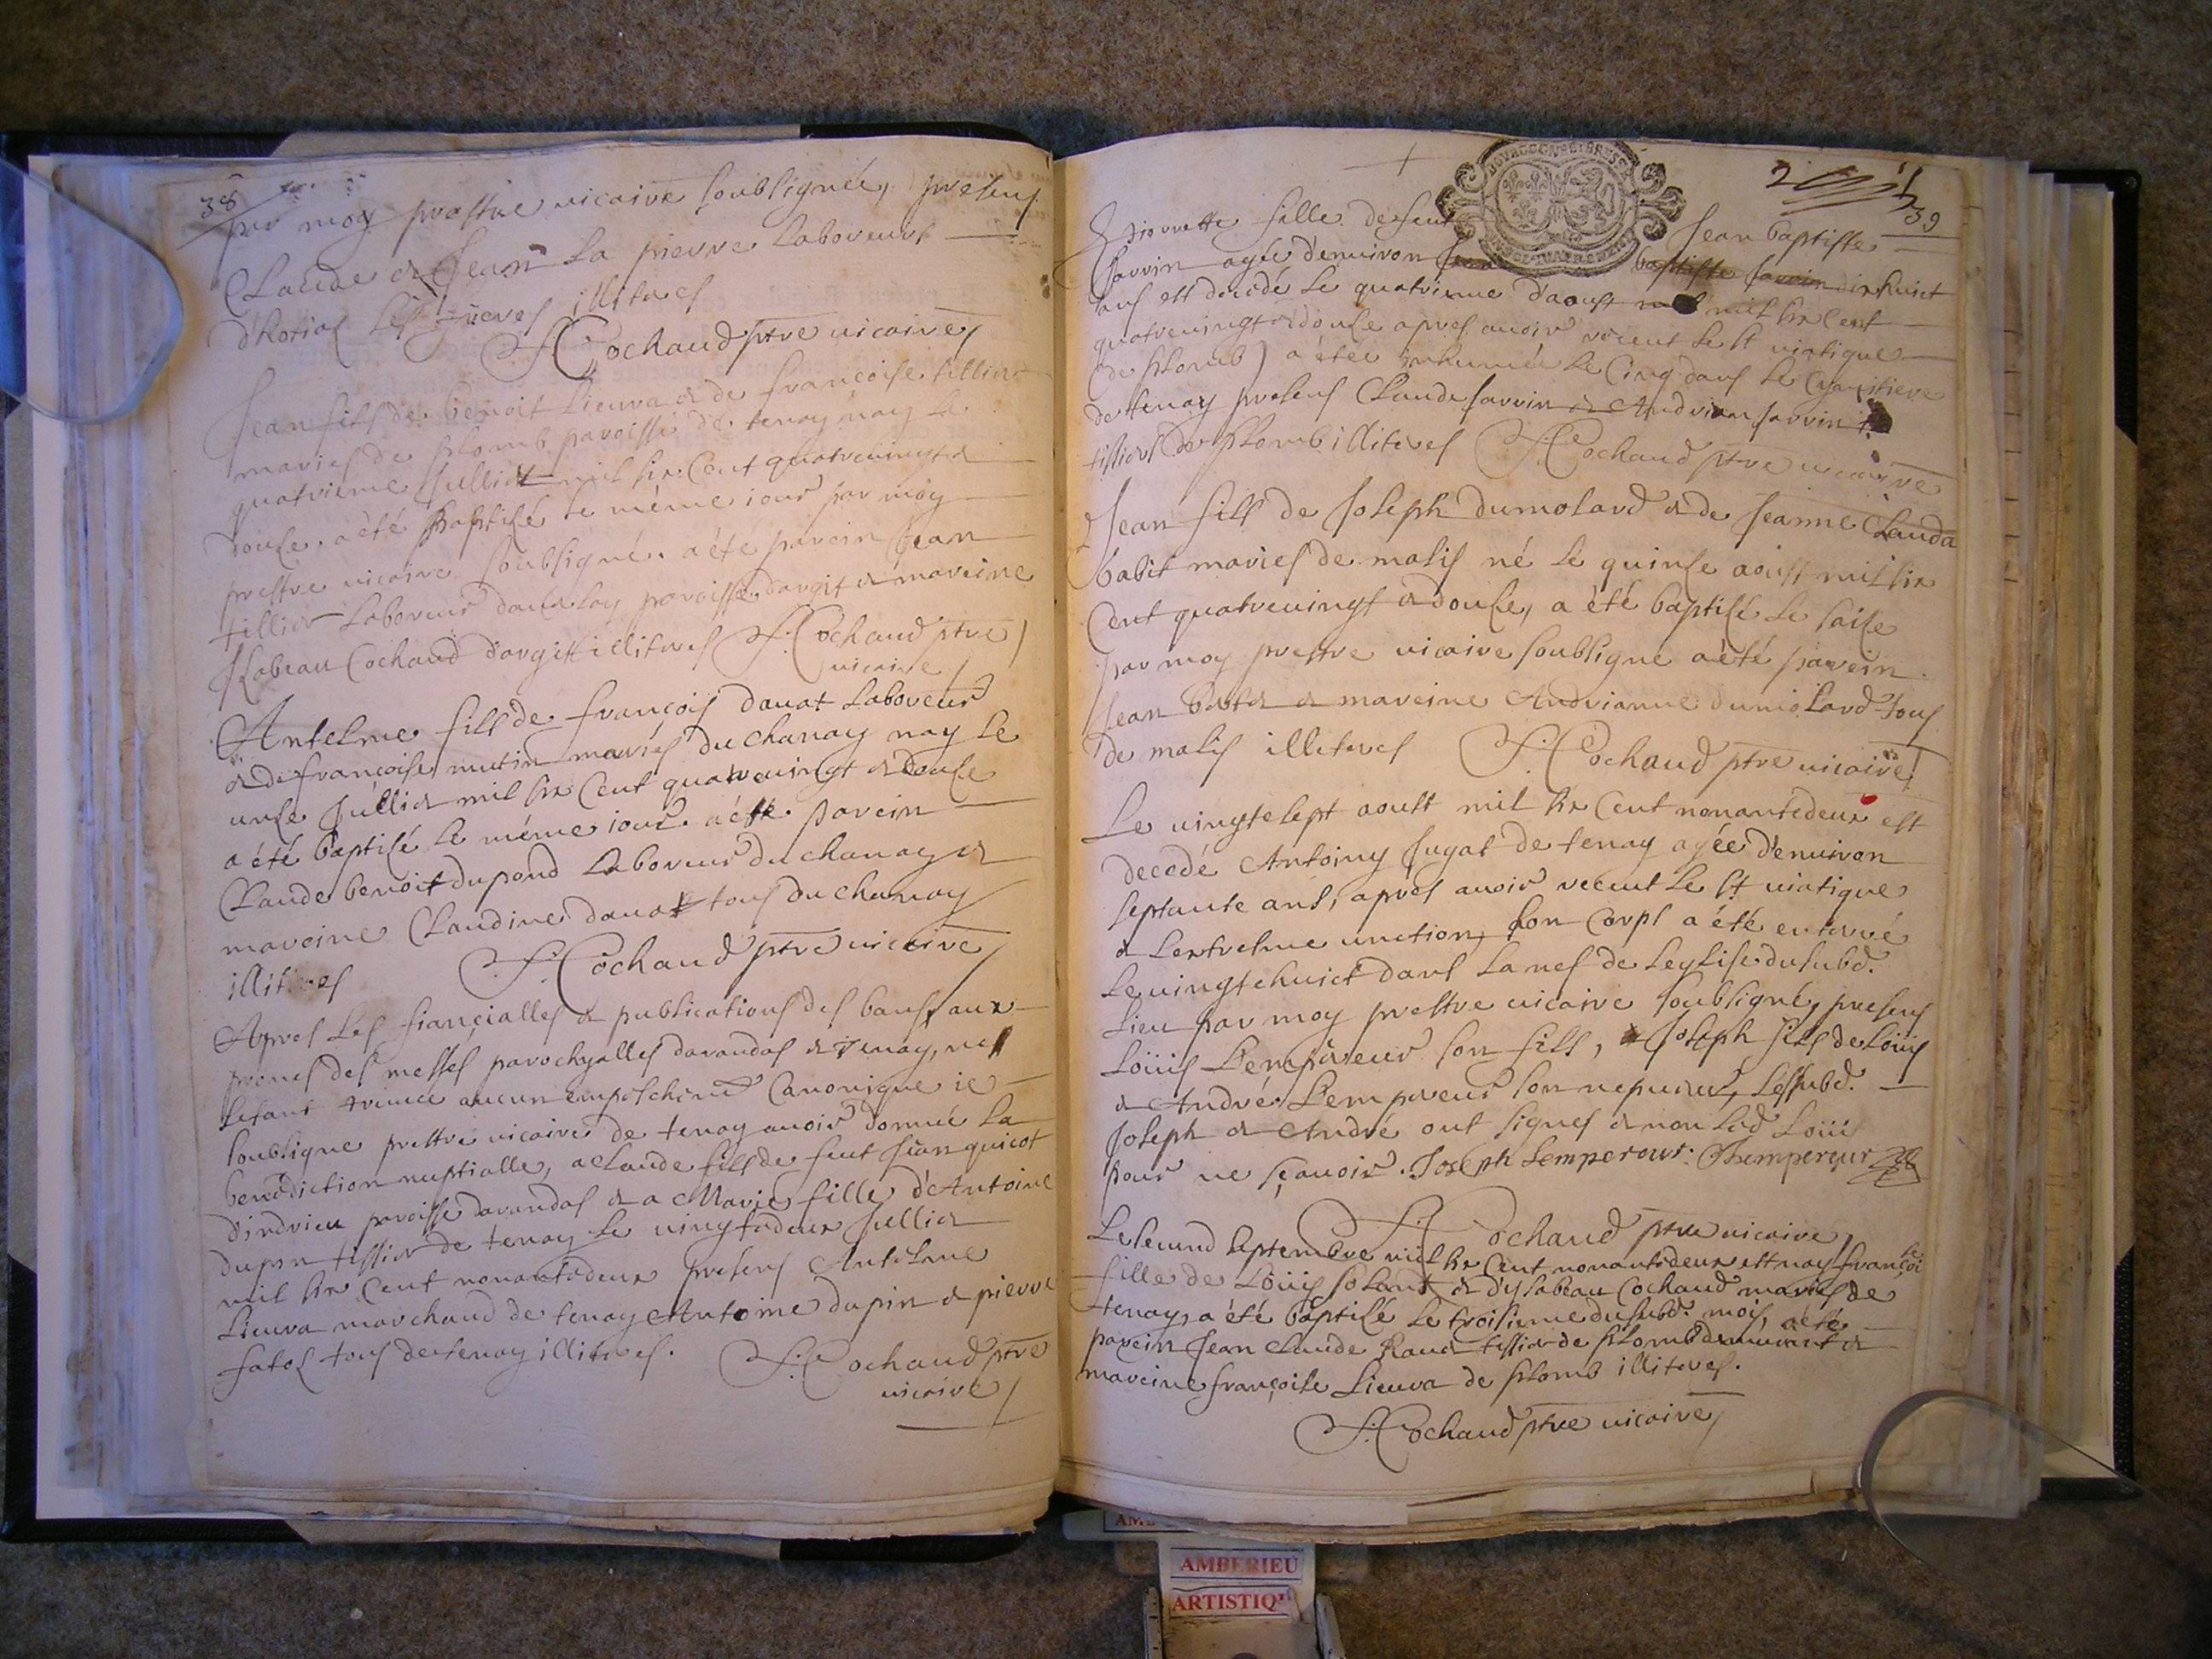 38
par moy prestre vicaire soubsigné, presens
Claude & Jean La pierre Laboreurs
d'hotias illiteres
F: Cochaud ptre vicaire
Jean fils de benoit Lieura & de françoise tillier
mariés de plomb paroisse de tenay nay le
quatrieme Jullict mil six cent quatrevingt &
douse. a été baptisé le méme iour par moy
prestre vicaire soubsigné. a été parein Jean
tillier Laboreur paroisse d'argit & mareine
Isabeau Cochaud d'argit illiteres F: Cochaud ptre
vicaire
Antelme fils de françois dauat Laboreur
& de françoise mutin mariés du chanay nay le
unse Jullict mil six cent quatrevingt & douse
a été baptisé le méme iour. a été parein
Claude benoit dupond Laboreur du chanay &
mareine Claudine dauat tous du chanay
illiteres F: Cochaud ptre vicaire
Apres les fiançialles & publications des bans, aux
prones des messes parochyalles darandas & tenay, ne
sestant treuué aucun empechemt Canonique ie
soubsigne prestre vicaire de tenay auoir donné la
benediction nuptialle, a Claude fils de feut Jean quicot
d'indrieu paroisse darandas & a Marie fille d'Antoine
dupin tissier de tenay le vingtedeux Jullict
mil six cent nonantedeux presens Antelme
Lieura marchand de tenay Antoine dupin & pierre
fatol tous de tenay illiteres. F: Cochaud ptre
vicaire
BOURGOGNE & BRESSE
39
Pierrette fille de feut Jean baptiste
Sarrin agée d'enuiron baptiste Sarrin dixhuict
ans est decedé le quatrieme d'aoust mil six cent
quatrevingt & douse apres auoir receut le st viatique
(de plomb) a étée inhumée le cinq dans le Cymitiere
de tenay presens Claude Sarrin & Andrian Sarrin
tissiers de plomb illiteres F: Cochaud ptre vicaire
Jean fils de Joseph dumolard & de Jeanne Clauda
babit mariés de malis né le quinse aoust mil six
cent quatrevingt & douse, a été baptisé le saise
par moy prestre vicaire soubsigne a été parein
Jean & mareine Andrianne dumolard tous
de malis illiteres F: Cochaud ptre vicaire
Le vingtesept aoust mil six cent nonantedeux est
decedé Antoiny Jugat de tenay agée d'enuiron
septante ans, apres auoir receut le st viatique
& Lextresme unction, son corps a été enterré
le vingtehuict dans la nef de Leglise dusubd.
Lieu par moy prestre vicaire soubsigné, presens
Loüis L'empereur son fils, & Joseph fils de Loüis
& André L'empereur son nepueur, Lessubd.
Joseph & André ont signés & non Led Loüis
pour ne sçauoir. Joseph Lempereur. Lempereur
F: Cochaud ptre vicaire
Le second septembre mil six cent nonantedeux est nay françoise
fille de Loüis & d'ysabeau Cochaud mariés de
tenay, a été baptisé le troisieme dusubd. mois, a été
parein Jean Claude tissier de plomb &
mareine françoise Lieura de plomb illiteres.
F: Cochaud ptre vicaire
AMBERIEU
ARTISTIQ